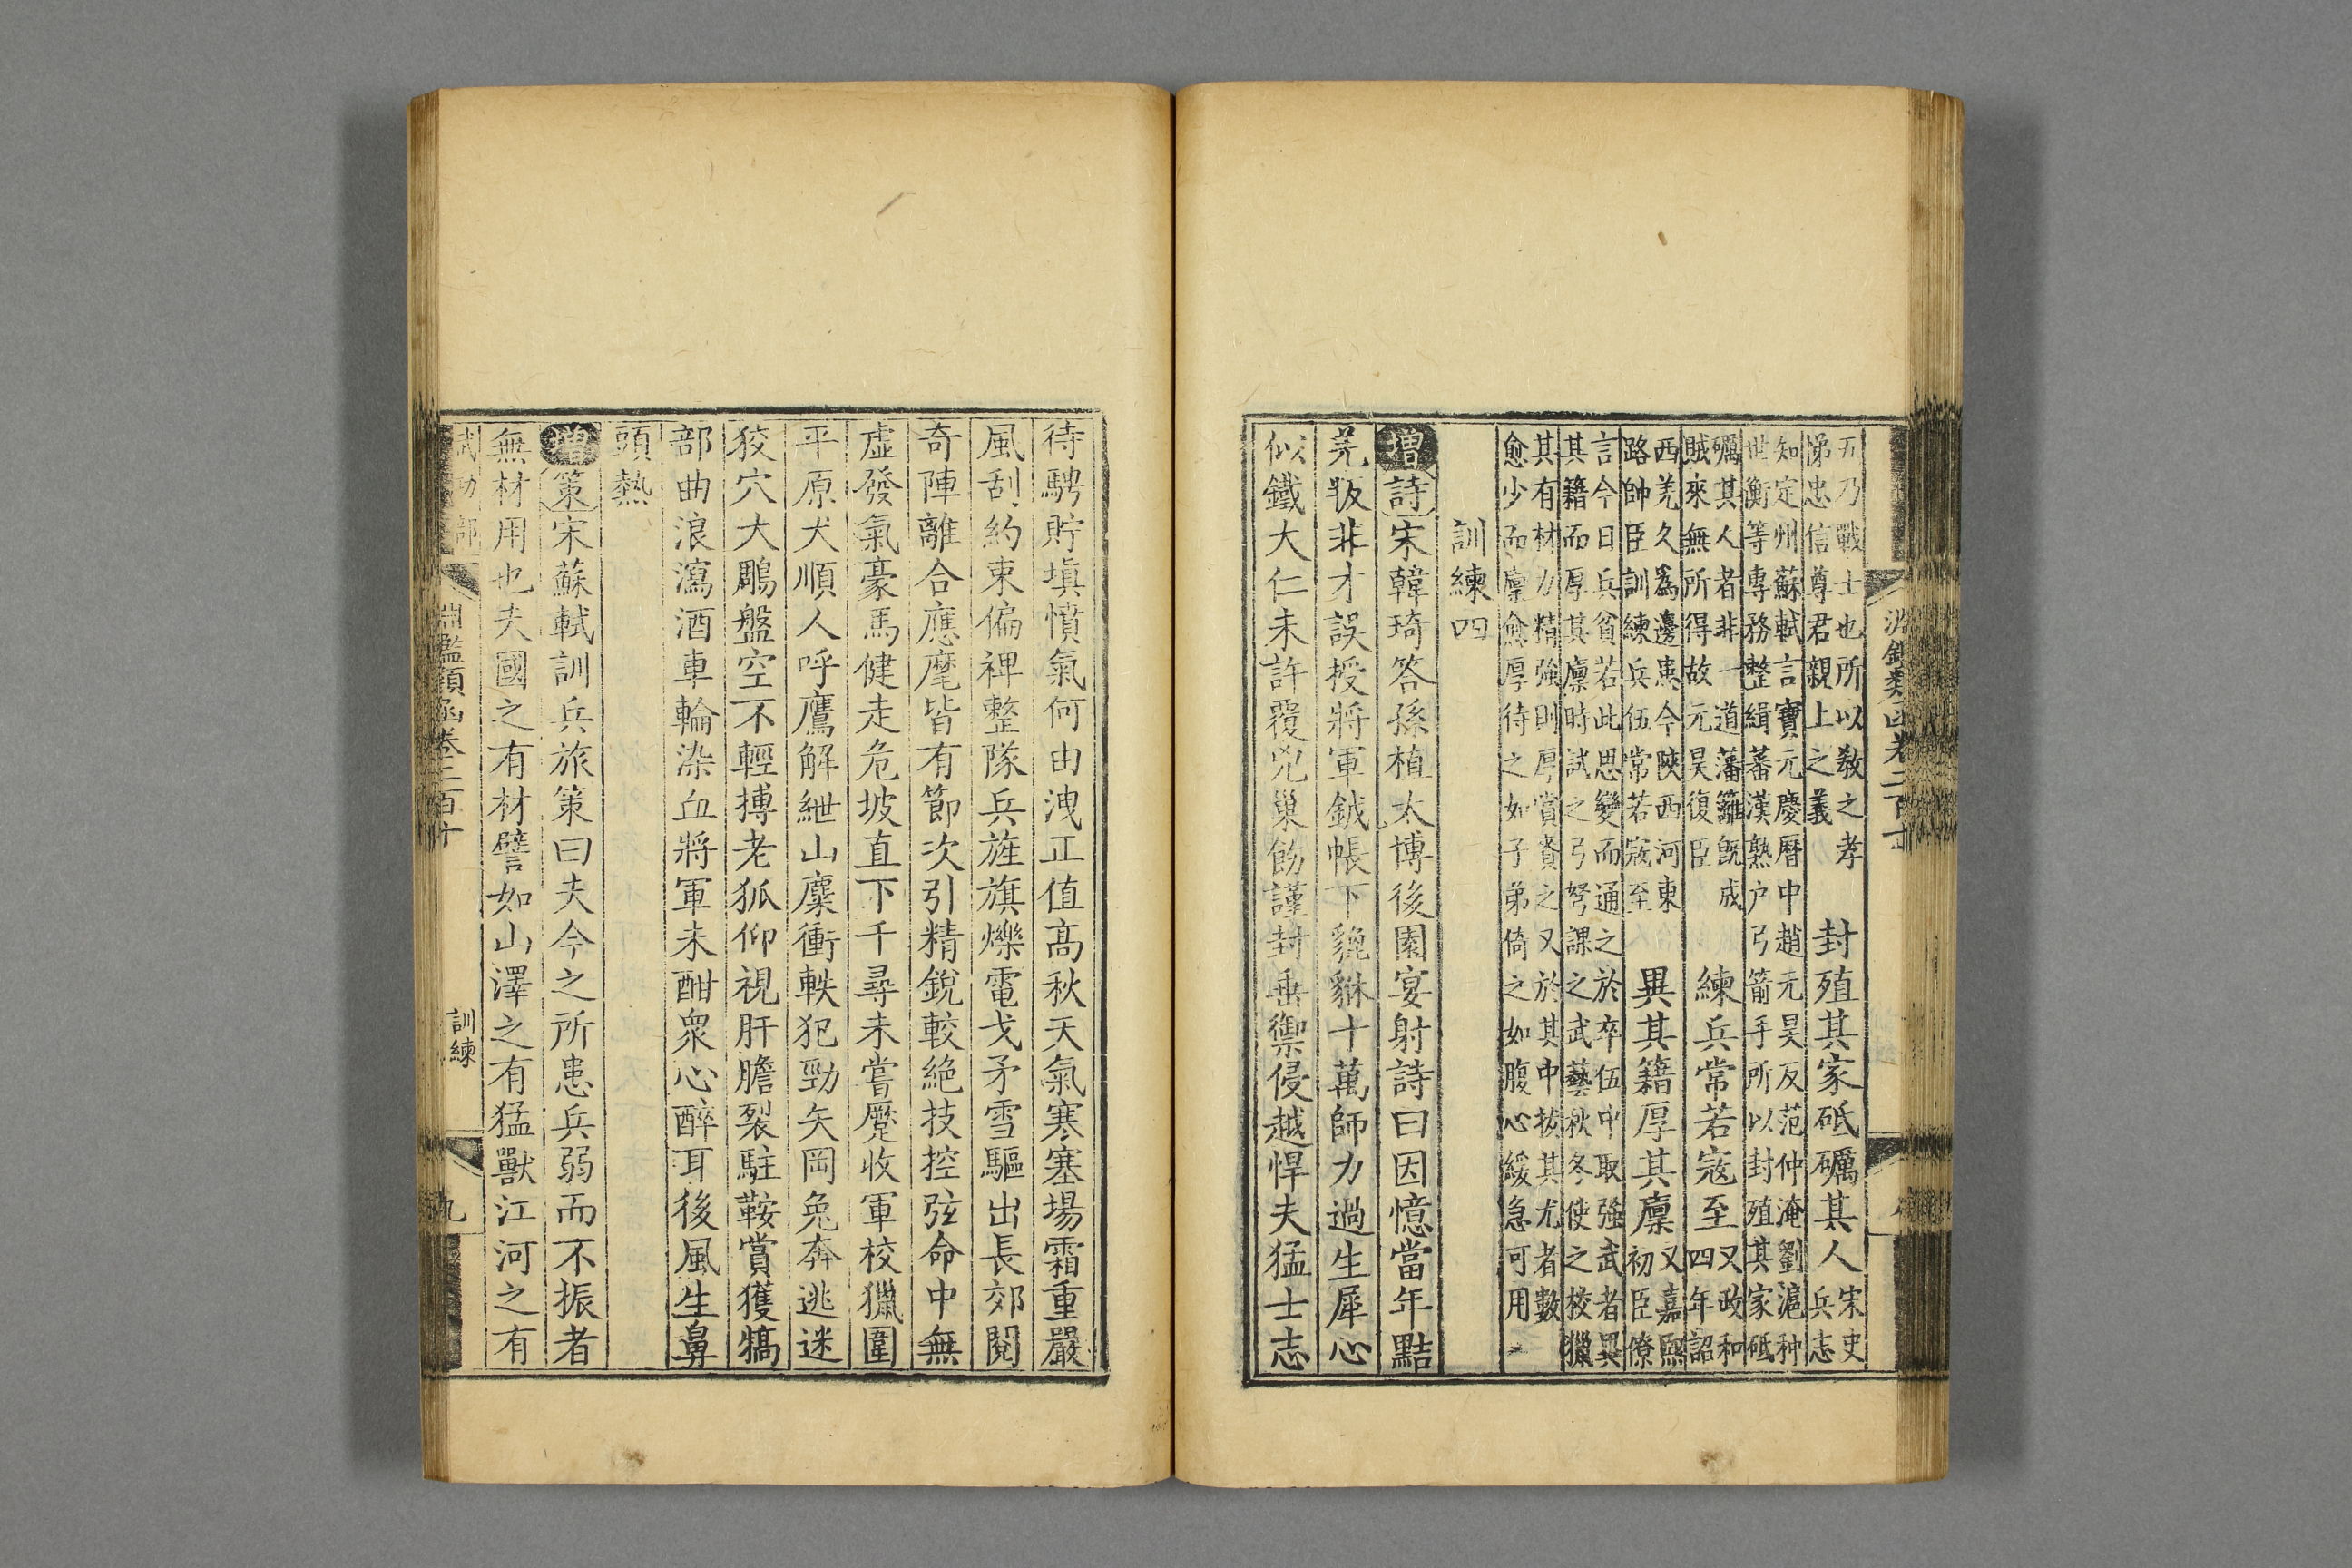 淵鑑類函卷二百十
五乃戰士也所以教之孝
悌忠信尊君親上之義
封殖其家砥礪其人
宋史
兵志
知定州蘇軾言寶元慶曆中趙元昊反范仲淹劉滬种
世衡等專務整緝蕃漢熟户弓箭手所以封殖其家砥
礪其人者非一道藩籬既成
賊來無所得故元昊復臣
練兵常若寇至
又政和
四年詔
西羌久為邊患今陝西河東
路帥臣訓練兵伍常若寇至
異其籍厚其廪
又嘉熙
初臣僚
言今日兵貧若此思變而通之於卒伍中取强武者異
其籍而厚其廪時試之弓弩課之武藝秋冬使之校獵
其有材力精强則厚賞賚之又於其中拔其尤者數
愈少而廪愈厚待之如子弟倚之如腹心緩急可用
訓練四
增詩宋韓琦答孫植太博後園宴射詩曰因憶當年點
羌叛非才誤授將軍鉞帳下貔貅十萬師力過生犀心
似鐵大仁未許覆兇巢飭謹封垂禦侵越悍夫猛士志
待騁貯填憤氣何由洩正值高秋天氣寒塞場霜重嚴
風刮約束偏裨整隊兵旌旗爍電戈矛雪驅出長郊閱
奇陣離合應麾皆有節次引精銳較絕技控弦命中無
虛發氣豪馬健走危坡直下千尋未嘗蹷收軍校獵圍
平原犬順人呼鷹解紲山麋衝軼犯勁矢岡兔奔逃迷
狡穴大鵰盤空不輕搏老狐仰視肝膽裂駐鞍賞獲犒
部曲浪瀉酒車輪染血將軍未酣衆心醉耳後風生鼻
頭熱
增策宋蘇軾訓兵旅策曰夫今之所患兵弱而不振者
無材用也夫國之有材譬如山澤之有猛獸江河之有
武功部
淵鑑類函卷二百十
訓練
九